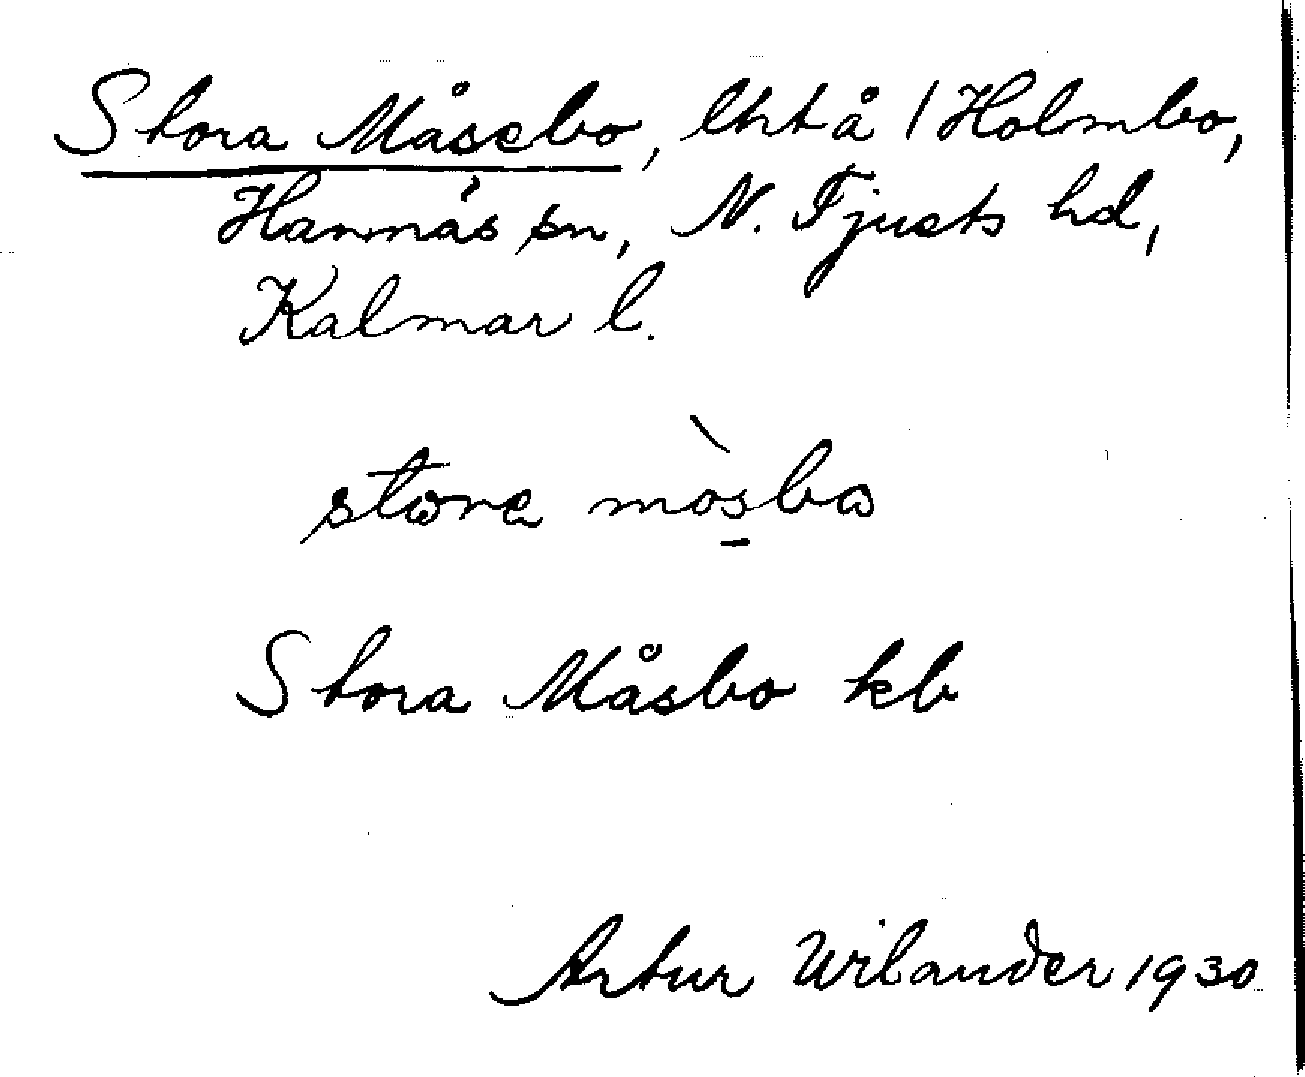 Stora Måsebo, lht å 1 Holmbo,
Hannäs sn, N. Tjusts hd,
Kalmar l.
mòsbo
Stora Måsbo kb
Artur Wilander 1930